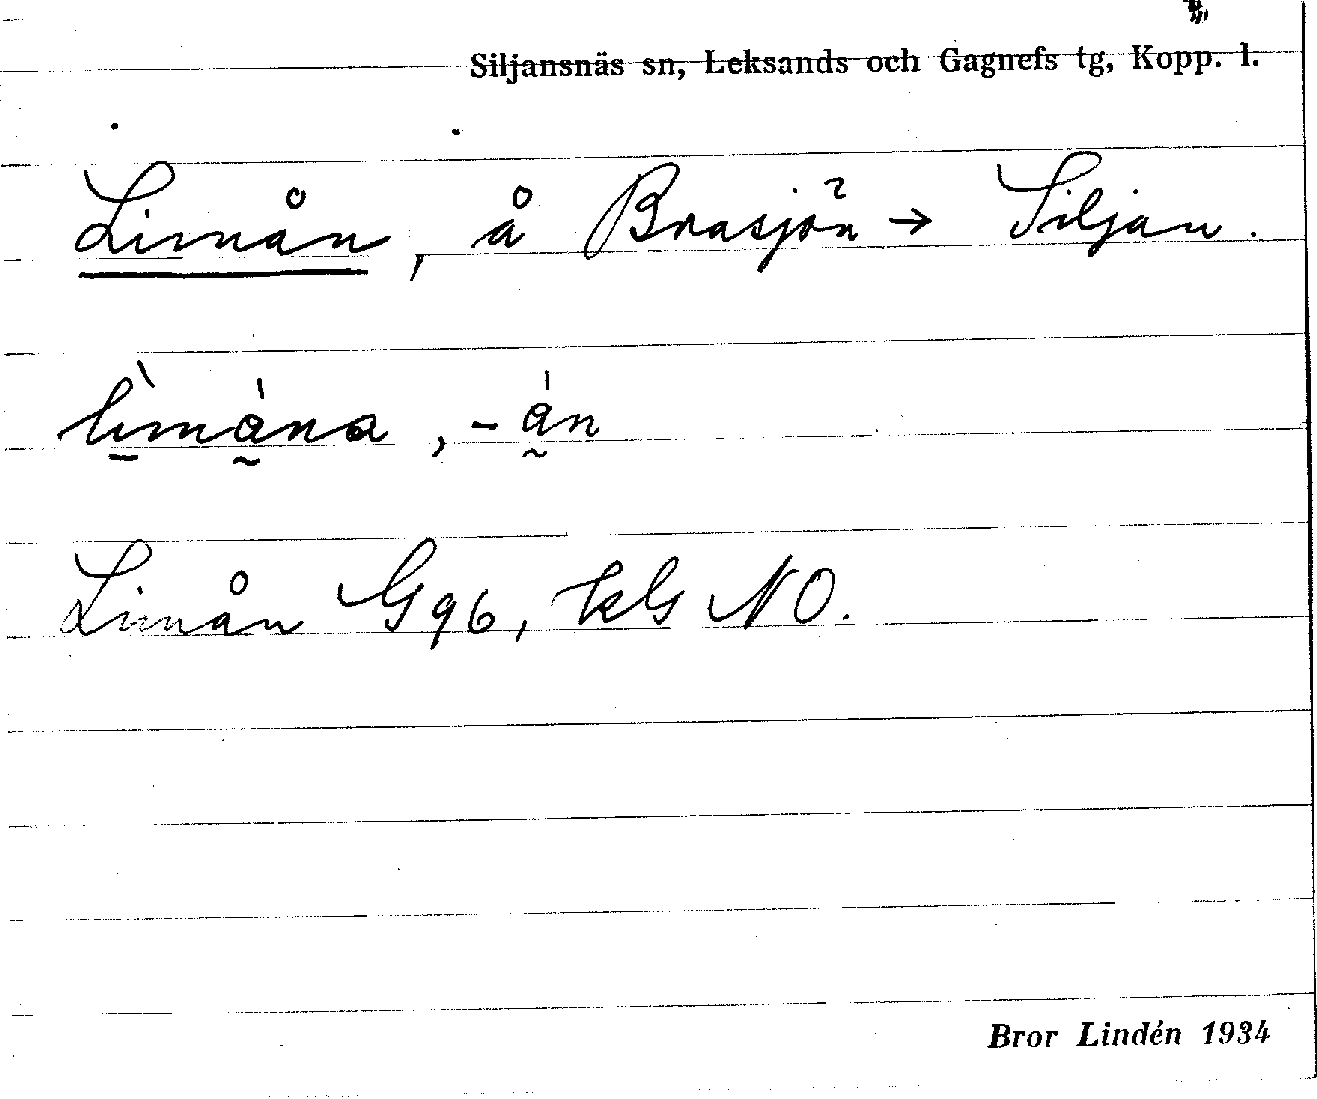 Siljansnäs sn, Leksands och Gagnefs tg, Kopp. l.
Limån, å Brasjön → Siljan.
lìmåna, -ån
Limån G96, kG NO.
Bror Lindén 1934